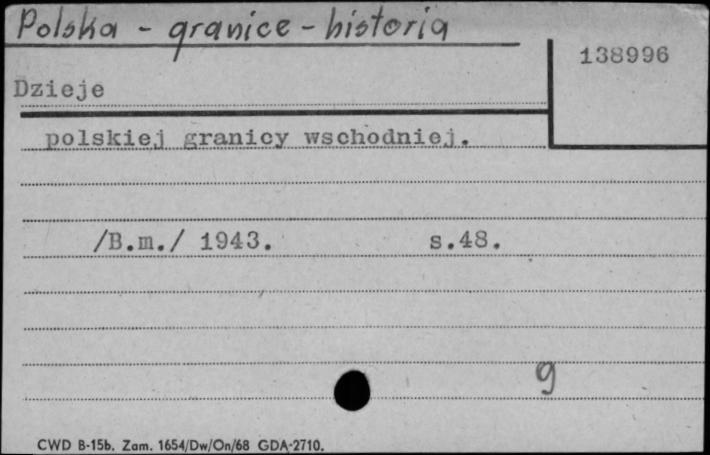 Polska - granice - historia
138996
Dzieje
polskiej granicy wschodniej.
/B.m./ 1943. s.48.
g
CWD B-15b. Zam. 1654/Dw/On/68 GDA-2710.